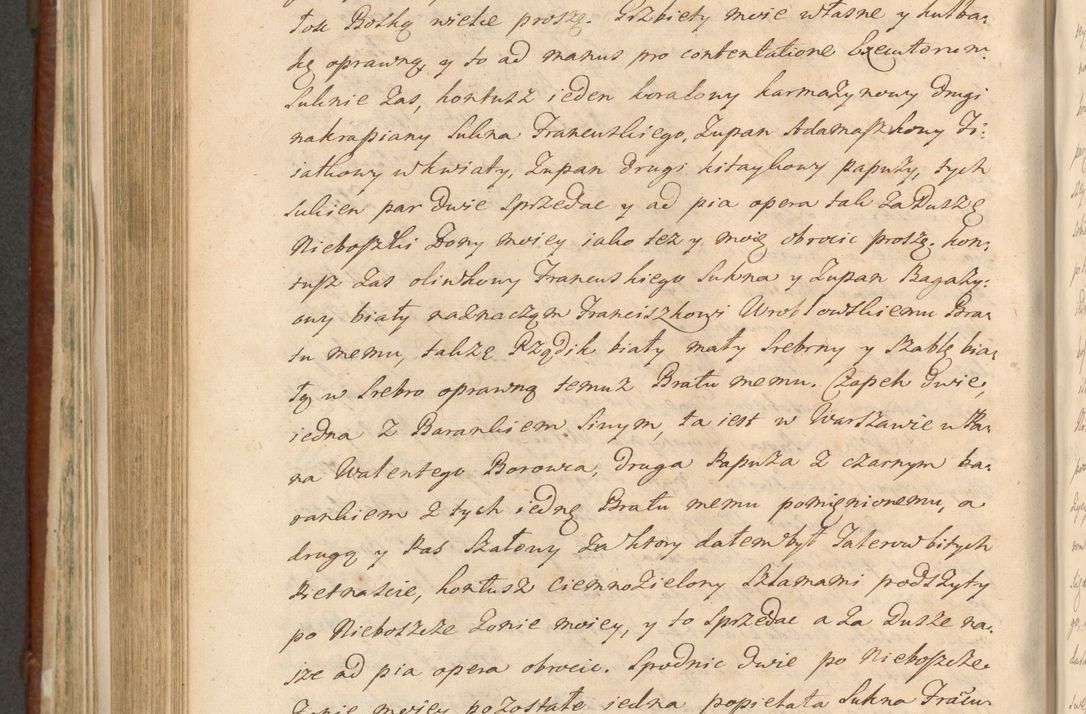 tou Boską wielce proszę. Grzbiety moie własne y kulba-
kę oprawną, y to ad manus pro contentatione Executorum
Suknie zas, kontusz ieden koralowy karmazynowy drugi
nakrapiany Sukna Francuskiego, Zupan Adamaszkowy Fi-
iałkowy w kwiaty, Zupan drugi kitaykowy papuży, tych
sukien par dwie sprzedac y ad pia opera tak za Duszę
Nieboszki Żony moiey iako tez y moię obrocic proszę. kon-
tusz zas oliwkowy Francuskiego Sukna y Zupan Bagazy-
owy biały naznaczam Franciszkowi Wroblowskiemu Bra-
tu memu, takze Rządzik biały mały srebrny y Szablę bia-
łą w Srebro oprawną temuz Bratu memu. Czapek dwie,
iedna z Barankiem Siwym, ta iest w Warszawie u Pa-
na Walentego Borowca, druga Papuza z czarnym ba-
rankiem z tych iednę Bratu memu pomięnionemu, a
drugą y Pas Szatowy za ktory dałem był Talerow bitych
Pietnaście, kontusz ciemnozielony Szlamami podszyty
po Nieboszcze Zonie moiey, y to Sprzedac a za Dusze na-
sze ad pia opera obrocic. Spodnic dwie po Nieboszcze
Zonie moiey pozostałe iedna popielata Sukna Francu-